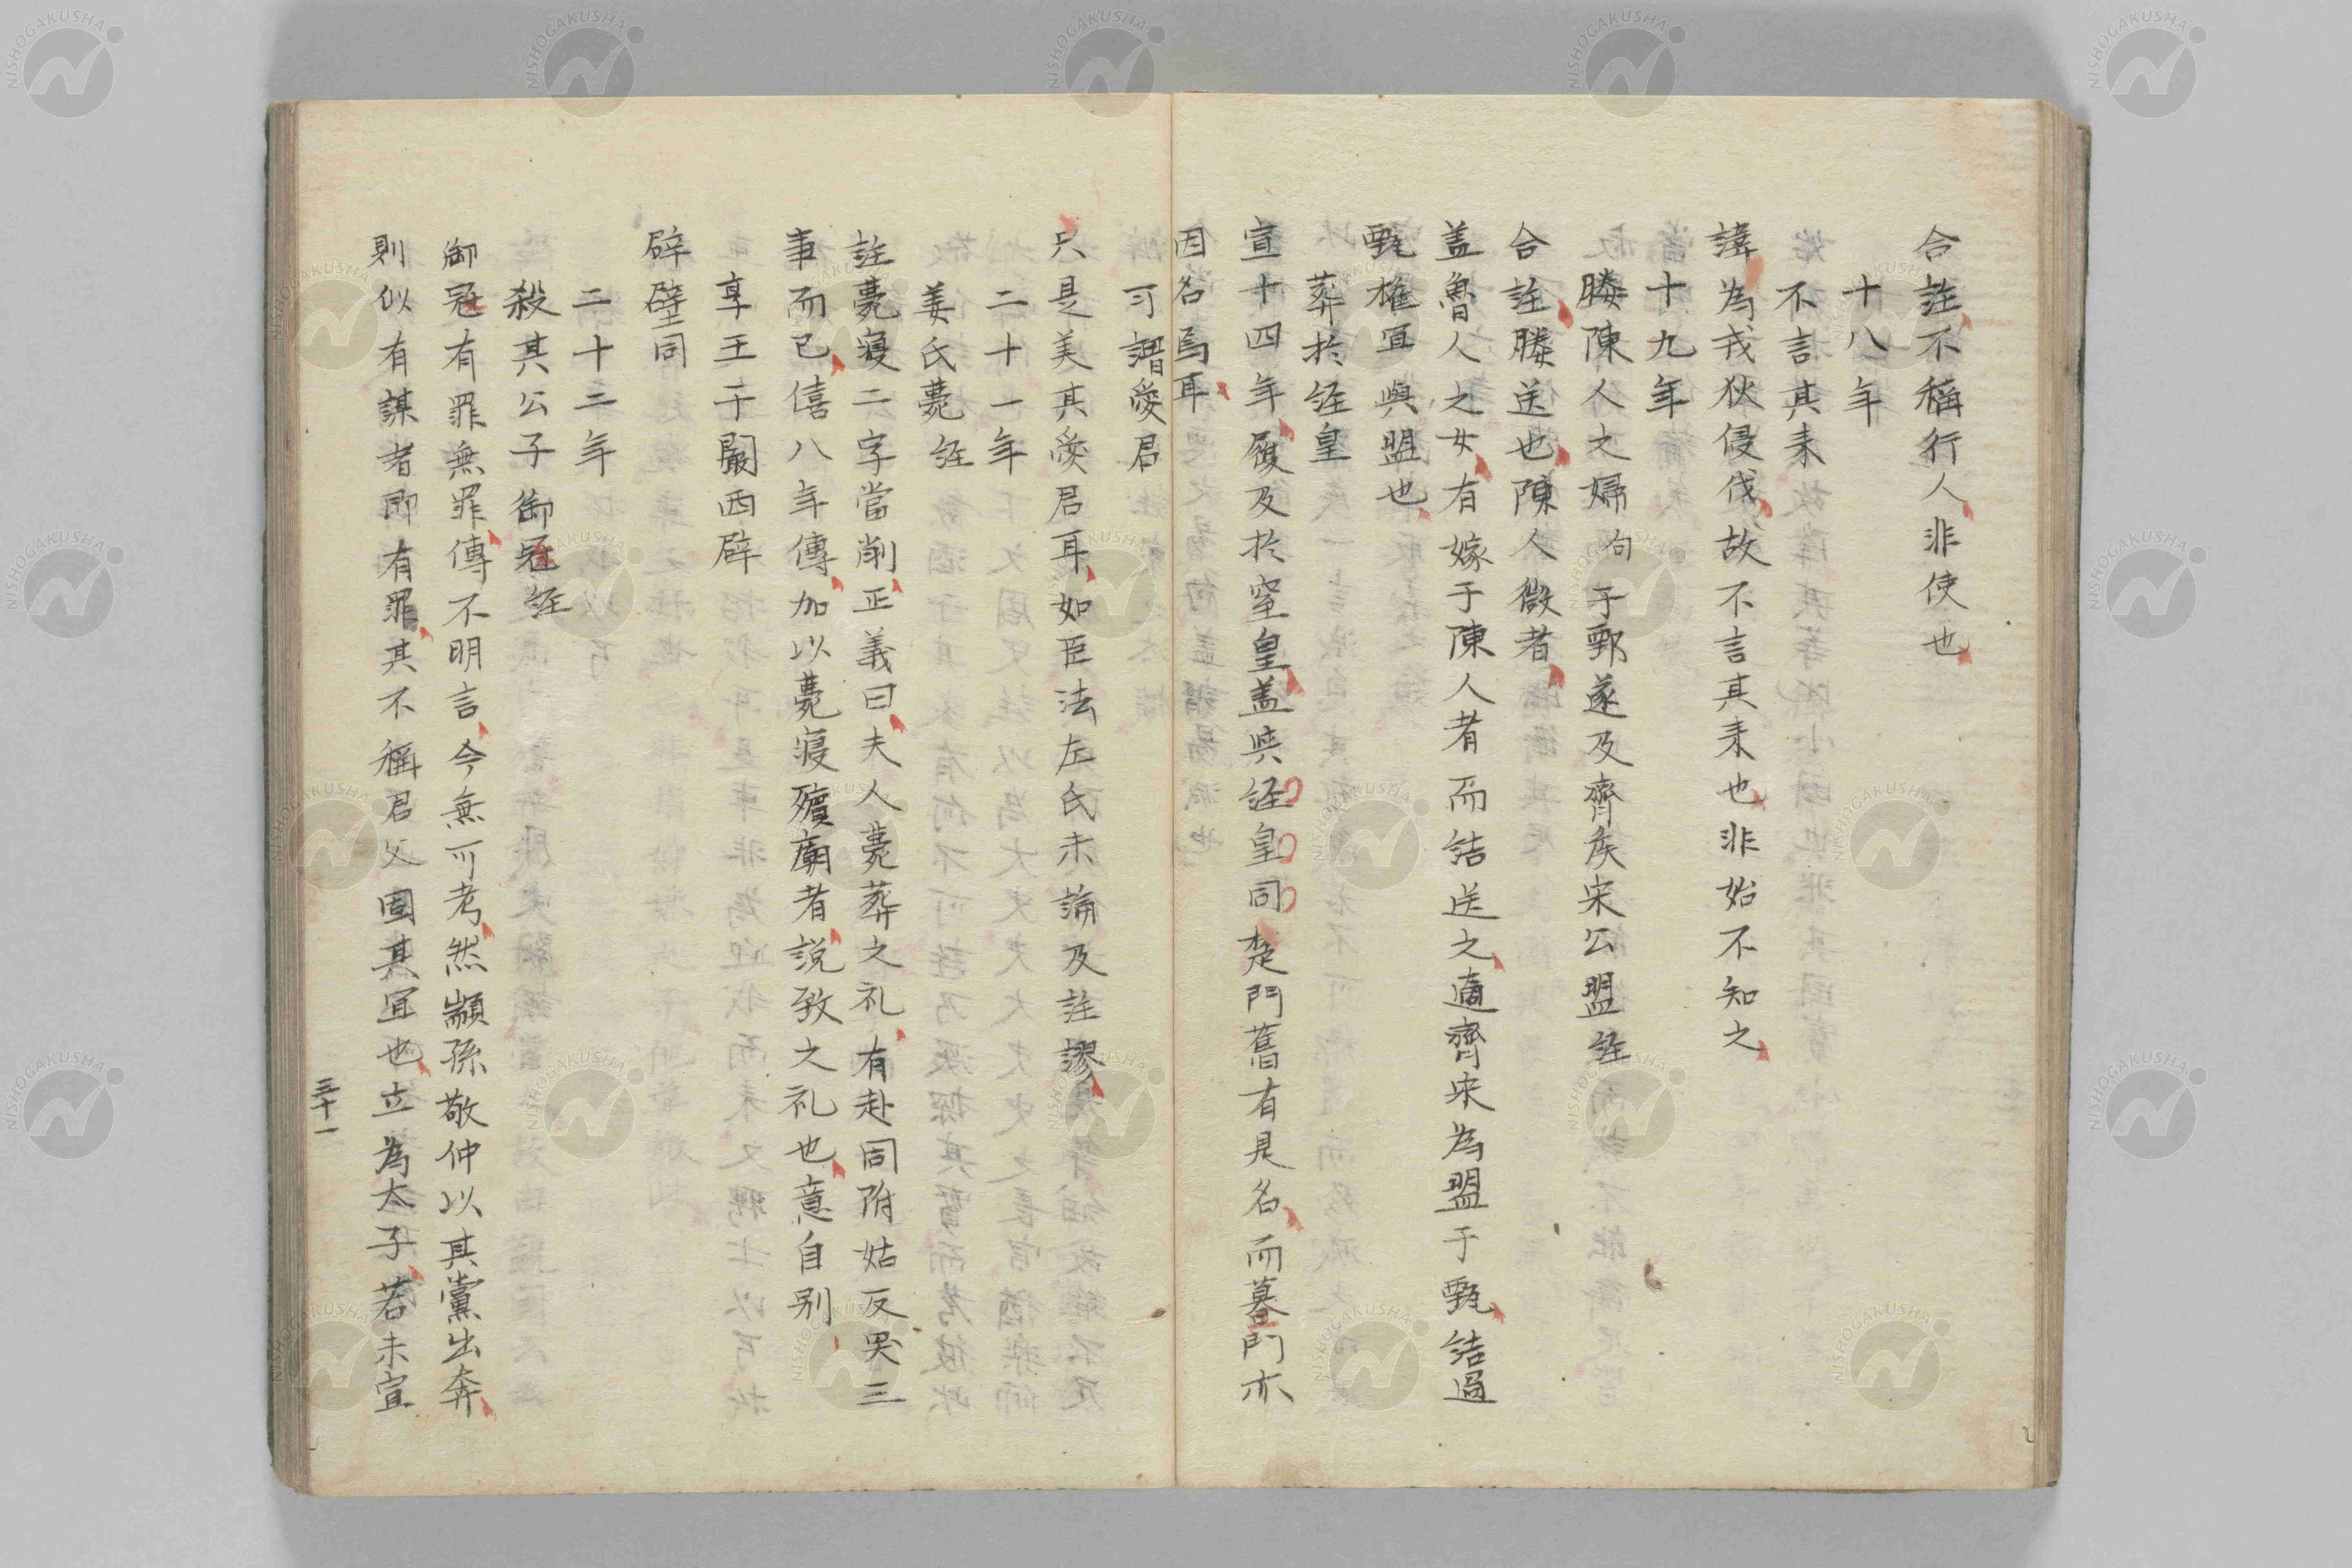 合註不稱行人非使也
十八年
不言其来
諱為戎狄侵伐故不言其来也非始不知之
十九年
媵陳人之婦句于鄄遂及齊矦宋公盟経
合註媵送也陳人微者
盖魯人之女有嫁于陳人者而結送之適齊宋為盟于甄結過
甄権宜與盟也
葬於絰皇
宣十四年屨及於窒皇盖與絰皇同楚門舊有是名而墓門亦
因名焉耳
可謂愛君
只是美其愛君耳如臣法左氏未論及註謬
二十一年
姜氏薨経
註薨寝二字當削正義曰夫人薨葬之礼有赴同附姑反哭三
事而已僖八年傳加以薨寝殯廟者説致之礼也意自別
享王于闕西辟
辟壁同
二十三年
殺其公子御冦経
御冦有罪無罪傳不明言今無可考然顓孫敬仲以其黨出奔
則似有謀者即有罪其不稱君父固其宜也立為太子若未宣
三十一
NISHOGAKUSHA